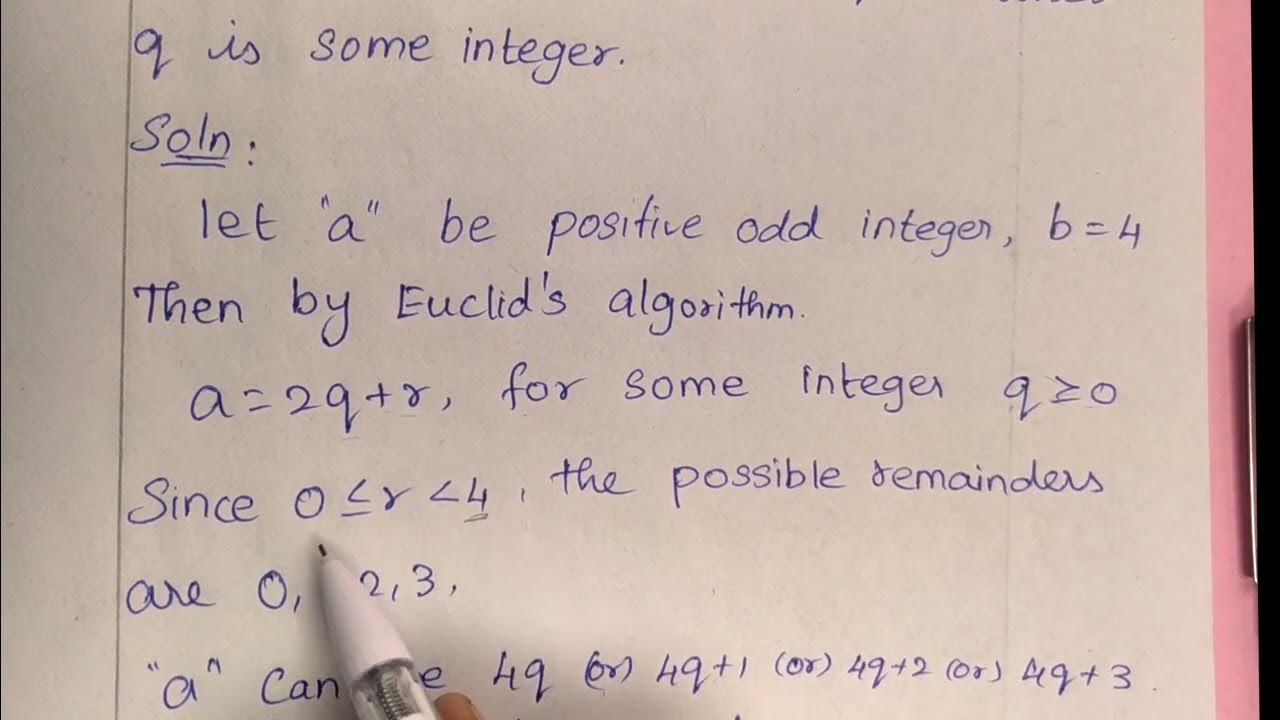 q is some integer.
Soln:
let "a" be positive odd integer, b = 4
Then by Euclid's algorithm.
a = 2q + r, for some integer q ≥ 0
Since 0 ≤ r < 4, the possible remainders
are 0, 2, 3,
"a" can 4q (or) 4q+1 (or) 4q+2 (or) 4q+3.